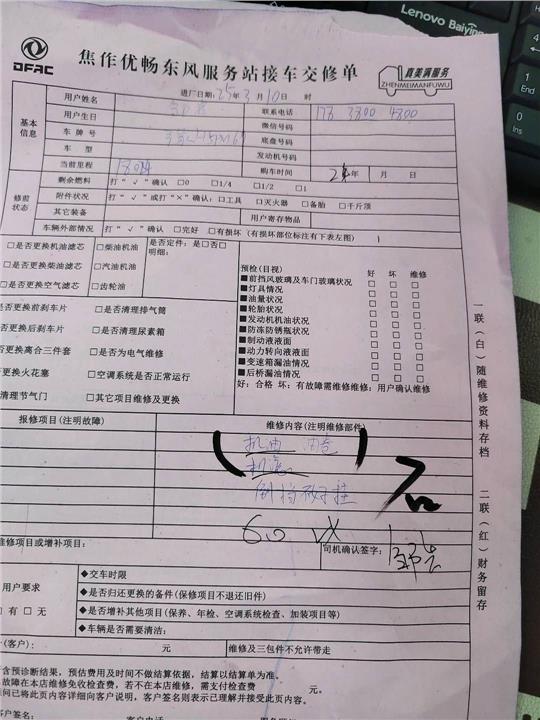 DFAC
焦作优畅东风服务站接车交修单
真美满服务
ZHENMEIMANFUWU
Lenovo
进厂日期: 25年3月10日 时
基本信息
用户姓名
联系电话
用户生日
微信号码
车牌号
底盘号码
车型
发动机号码
当前里程
购车时间
年 月 日
修前状态
剩余燃料 打“√”确认 □0 □1/4 □1/2 □1
附件状况 打“√”或打“×”确认: □工具 □灭火器 □备胎 □千斤顶
其它装备
用户寄存物品
车辆外部情况 打“√”确认 □完好 □有损坏 (有损坏部位标注有下表左图)
□是否更换机油滤芯 □柴油机油
是否定件: 是□否□
明细:
□是否更换柴油滤芯 □汽油机油
□是否更换空气滤芯 □齿轮油
预检(目视) 好 坏 维修
■前挡风玻璃及车门玻璃状况 □ □ □
■灯具情况 □ □ □
■油量状况 □ □ □
■轮胎状况 □ □ □
■发动机机油状况 □ □ □
■防冻防锈瓶状况 □ □ □
■制动液液面 □ □ □
■动力转向液液面 □ □ □
■变速箱漏油情况 □ □ □
■后桥漏油情况 □ □ □
好: 合格 坏: 有故障需维修维修: 用户确认维修
是否更换前刹车片 □是否清理排气筒
是否更换后刹车片 □是否清理尿素箱
否更换离合三件套 □是否为电气维修
否更换火花塞 □空调系统是否正常运行
清理节气门 □其它项目维修及更换
报修项目(注明故障)
维修内容(注明维修部件)
机油
机滤
60
维修项目或增补项目:
司机确认签字:
用户要求
□有 □无
◆交车时限
◆是否归还更换的备件(保修项目不退还旧件)
◆是否增补其他项目(保养、年检、空调系统检查、加装项目等)
◆车辆是否需要清洁:
(客户): 元
维修及三包件不允许带走
含预诊断结果, 预估费用及时间不做结算依据, 结算以结算单为准。
故障在本店维修免收检查费, 若不在本店维修, 需支付检查费 元。
问已将此页内容详细向客户说明, 客户签则表示已理解并接受此页内容。
客户签名:
客户电话
一联(白)随维修资料存档
二联(红)财务留存